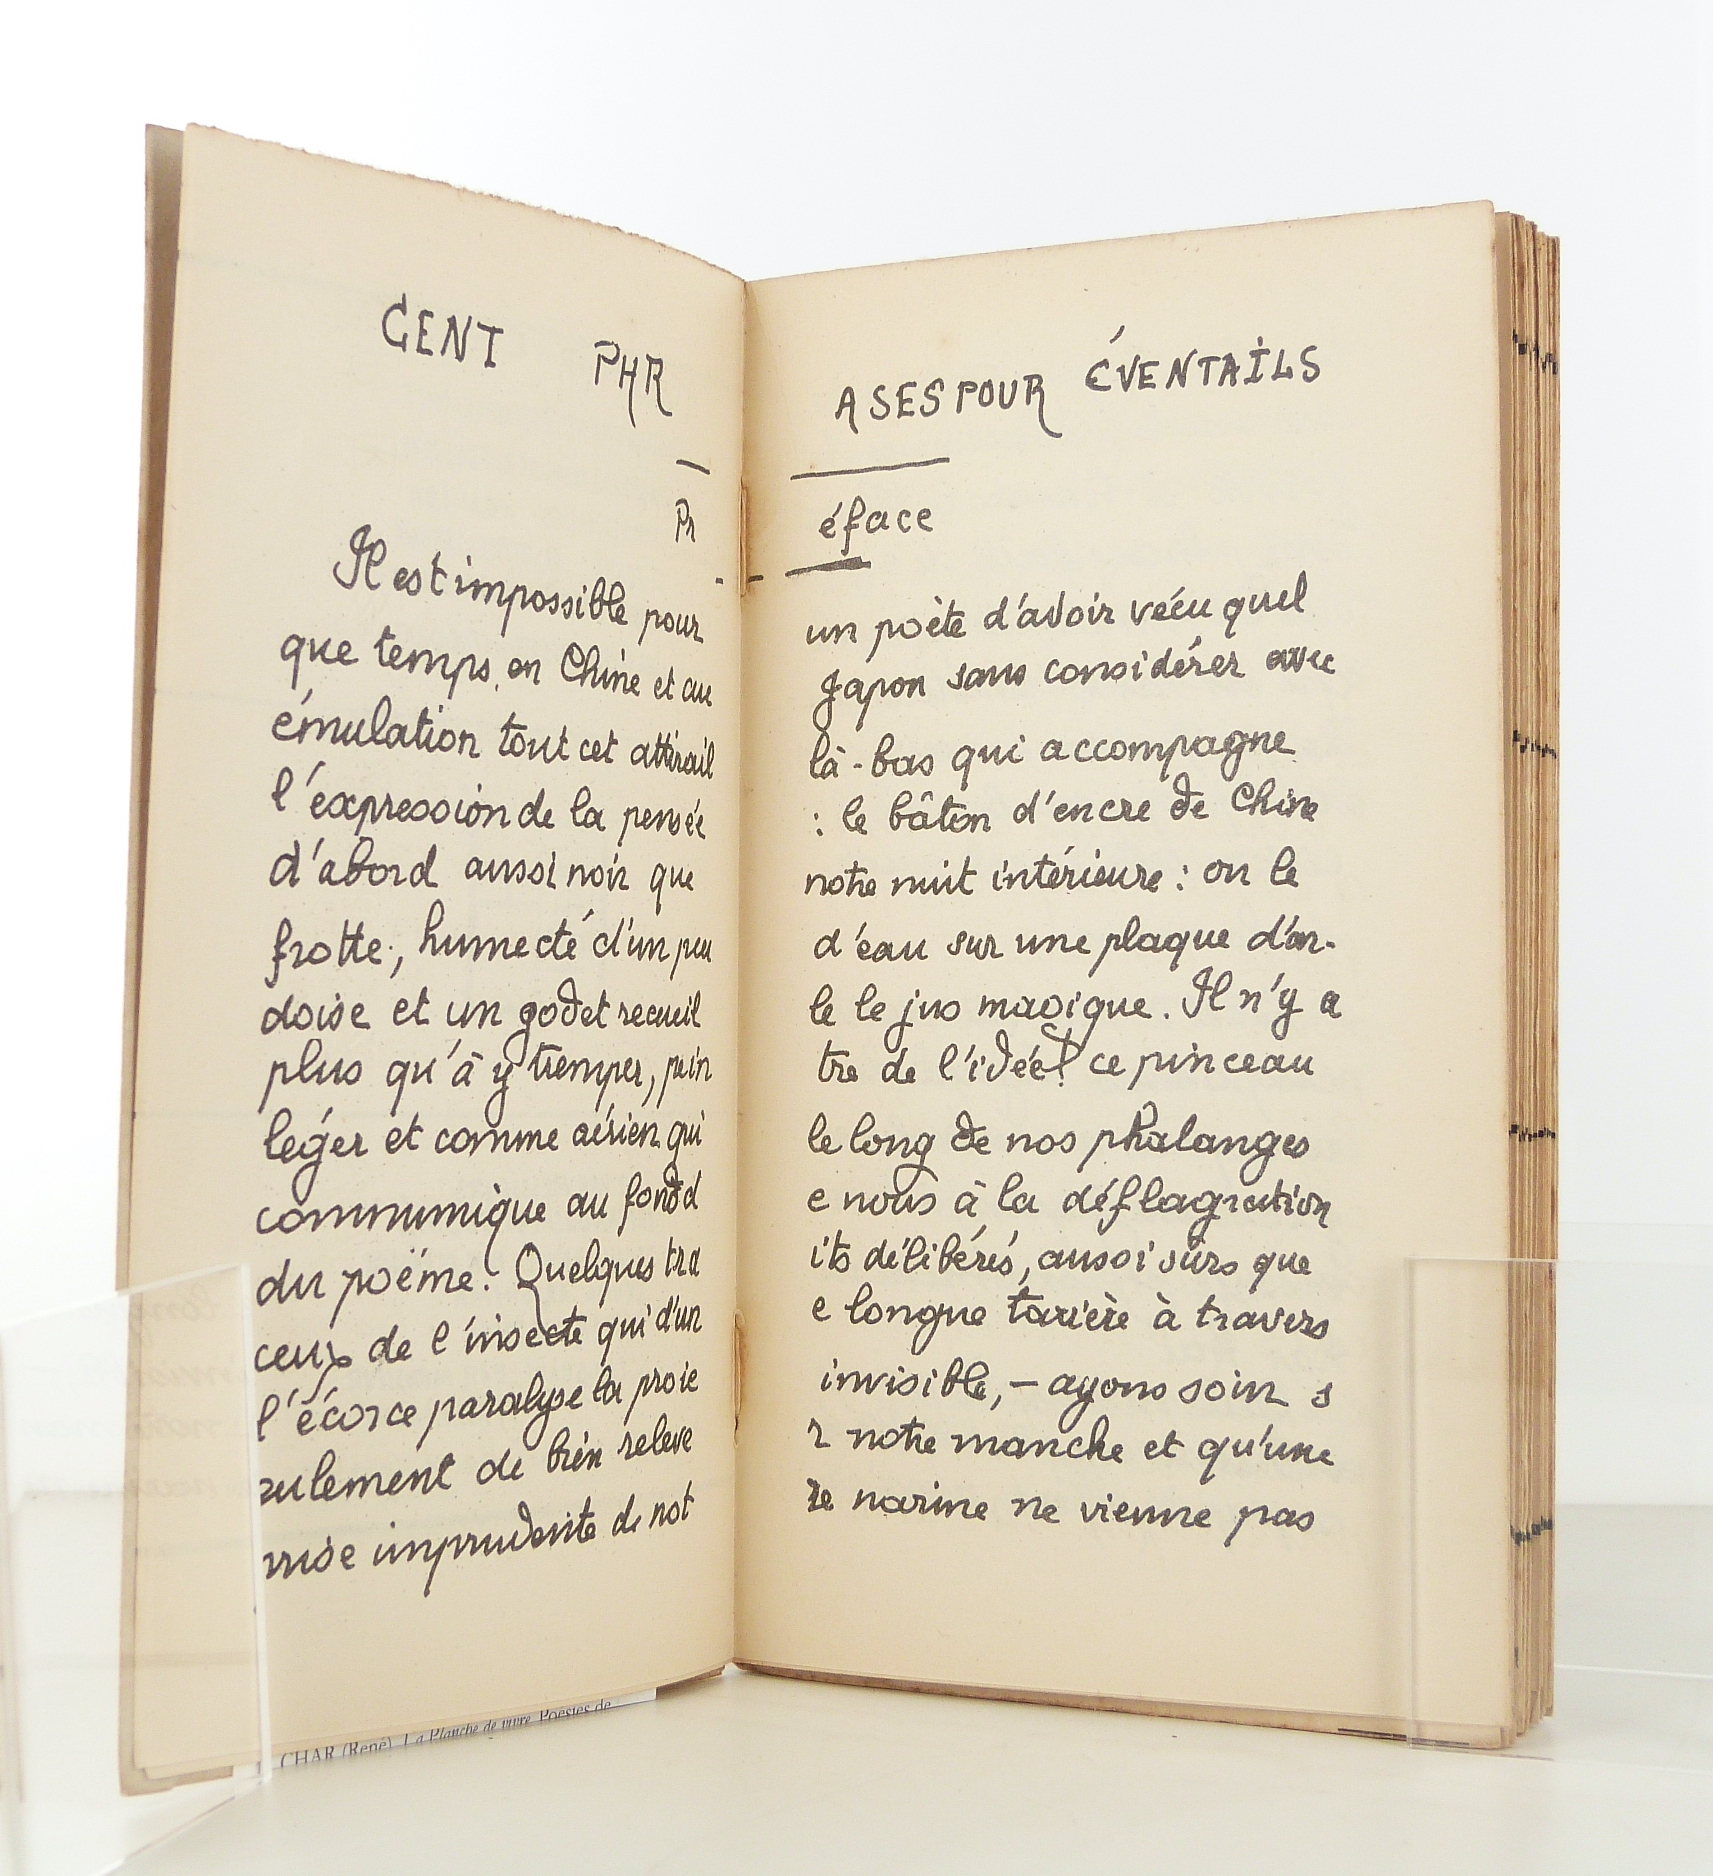 CENT PHR ASES POUR ÉVENTAILS
Pr éface
Il est impossible pour un poète d'avoir vécu quel
que temps en Chine et au Japon sans considérer avec
émulation tout cet attirail là-bas qui accompagne
l'expression de la pensée : le bâton d'encre de Chine
d'abord aussi noir que notre nuit intérieure : on le
frotte, humecté d'un peu d'eau sur une plaque d'ar-
doise et un godet recueil le le jus magique. Il n'y a
plus qu'à y tremper, pein tre de l'idée! ce pinceau
léger et comme aérien qui le long de nos phalanges
communique au fond d e nous à la déflagration
du poëme. Quelques tra its délibérés, aussi sûrs que
ceux de l'insecte qui d'un e longue tarière à travers
l'écorce paralyse la proie invisible, — ayons soin s
eulement de bien releve r notre manche et qu'une
imprudente de not re narine ne vienne pas
CHAR (René). La Planche de vivre. Poésies de